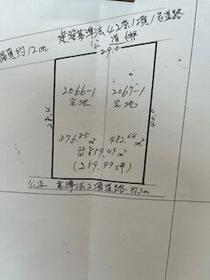 建築基準法42条1項1号道路
幅員約12m
公道
29.0
2066-1
宅地
2067-1
宅地
376.85㎡
482.64㎡
計859.49㎡
(259.99坪)
公道 基準法2項道路 約3m